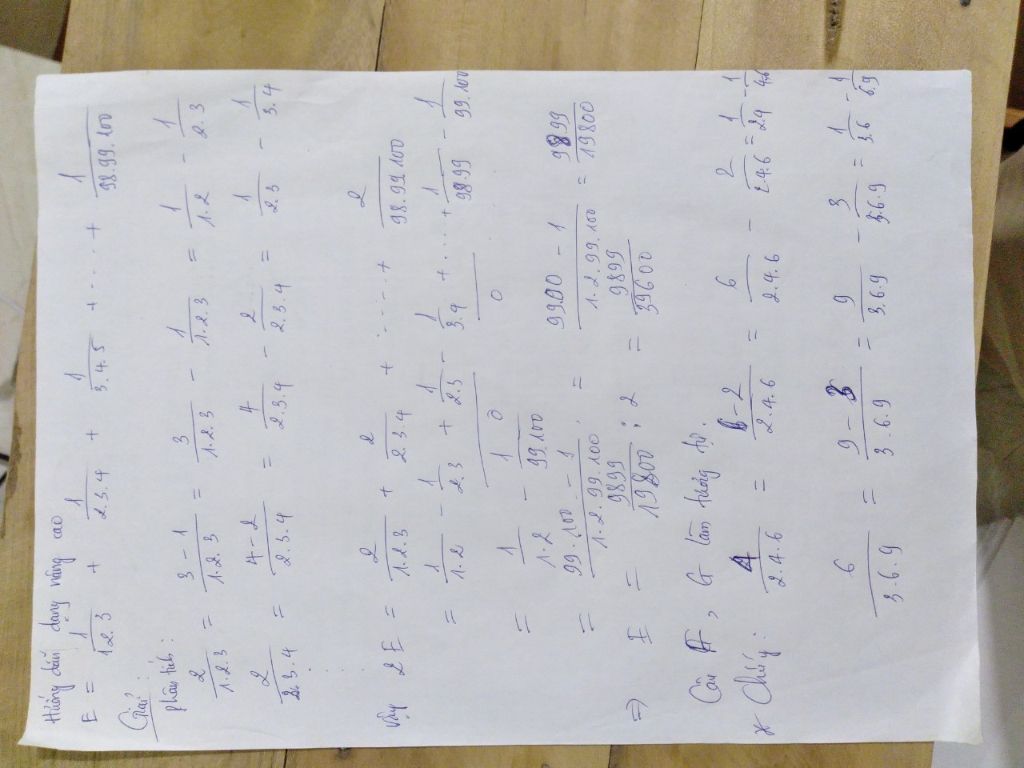 Hướng dẫn dạng nâng cao
E = 1/1.2.3 + 1/2.3.4 + 1/3.4.5 + ..... + 1/98.99.100
Giải:
phân tích:
2/1.2.3 = 3-1/1.2.3 = 3/1.2.3 - 1/1.2.3 = 1/1.2 - 1/2.3
2/2.3.4 = 4-2/2.3.4 = 4/2.3.4 - 2/2.3.4 = 1/2.3 - 1/3.4
Vậy 2E = 2/1.2.3 + 2/2.3.4 + ..... + 2/98.99.100
= 1/1.2 - 1/2.3 + 1/2.3 - 1/3.4 + .... + 1/98.99 - 1/99.100
0 0
= 1/1.2 - 1/99.100
= 99.100 - 1/1.2.99.100 = 9900 - 1/1.2.99.100 = 9899/19800
⇒ E = 9899/19800 : 2 = 9899/39600
Câu F, G làm tương tự.
* Chú ý: 4/2.4.6 = 6-2/2.4.6 = 6/2.4.6 - 2/2.4.6 = 1/2.4 - 1/4.6
6/3.6.9 = 9-3/3.6.9 = 9/3.6.9 - 3/3.6.9 = 1/3.6 - 1/6.9